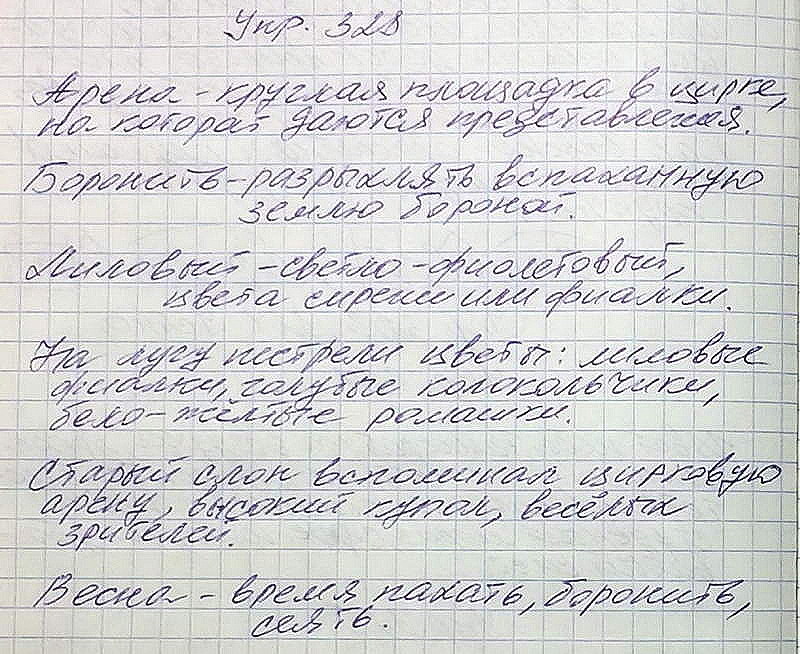 Упр. 328
Арена - круглая площадка в цирке,
на которай даются представления.
Боронить - разрыхлять вспаханную
землю бороной.
Лиловый - светло-фиолетовый,
цвета сирени или фиалки.
На лугу пестрели цветы: лиловые
фиалки, голубые колокольчики,
бело-жёлтые ромашки.
Старый слон вспоминал цирковую
арену, высокий купол, весёлых
зрителей.
Весна - время пахать, боронить,
сеять.